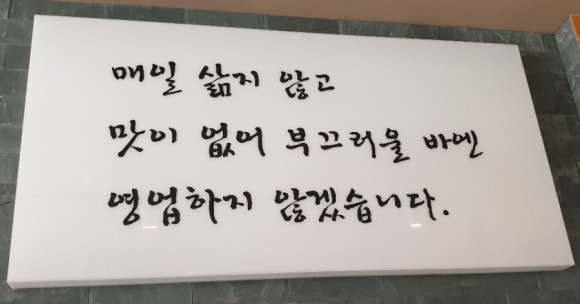 매일 삶지 않고
맛이 없어 부끄러울 바엔
영업하지 않겠습니다.